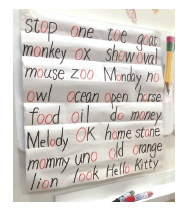 stop one toe goat
monkey ox show oval
mouse zoo Monday no
owl ocean open horse
food oil do money
Melody OK home stone
mommy uno old orange
lion look Hello Kitty